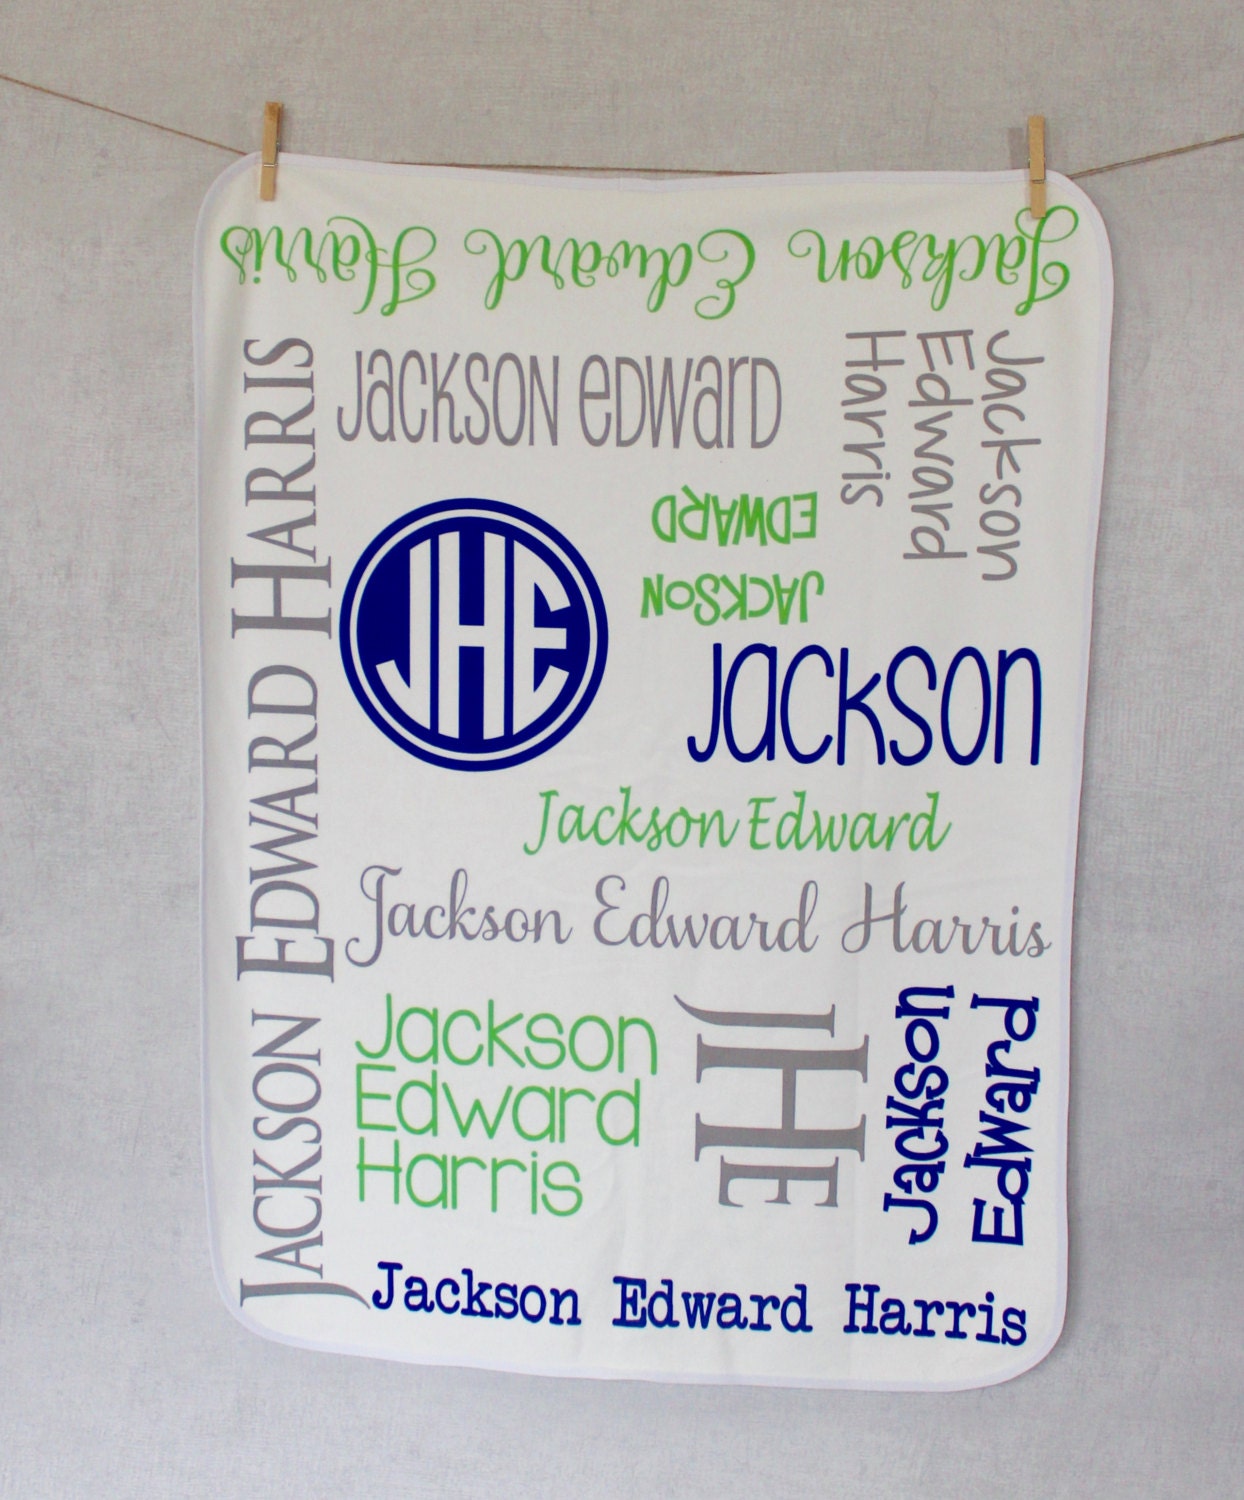 Jackson Edward Harris
JACKSON EDWARD HARRIS
Jackson Edward
Jackson
Edward
Harris
JACKSON
EDWARD
JHE
Jackson
Jackson Edward
Jackson Edward Harris
Jackson
Edward
Harris
JHE
Jackson
Edward
Jackson Edward Harris